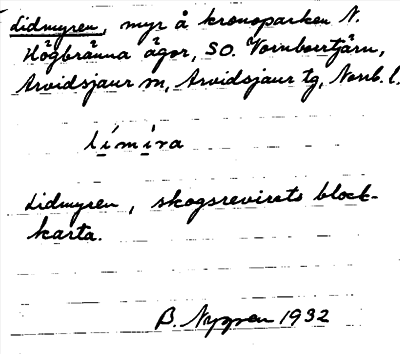 Lidmyren, myr å kronoparken N.
Högbränna ägor, SO. Vornboertjärn,
Arvidsjaur sn, Arvidsjaur tg, Norrb. l.
límíra
Lidmyren, skogsrevirets block-
karta.
B. Nygren 1932